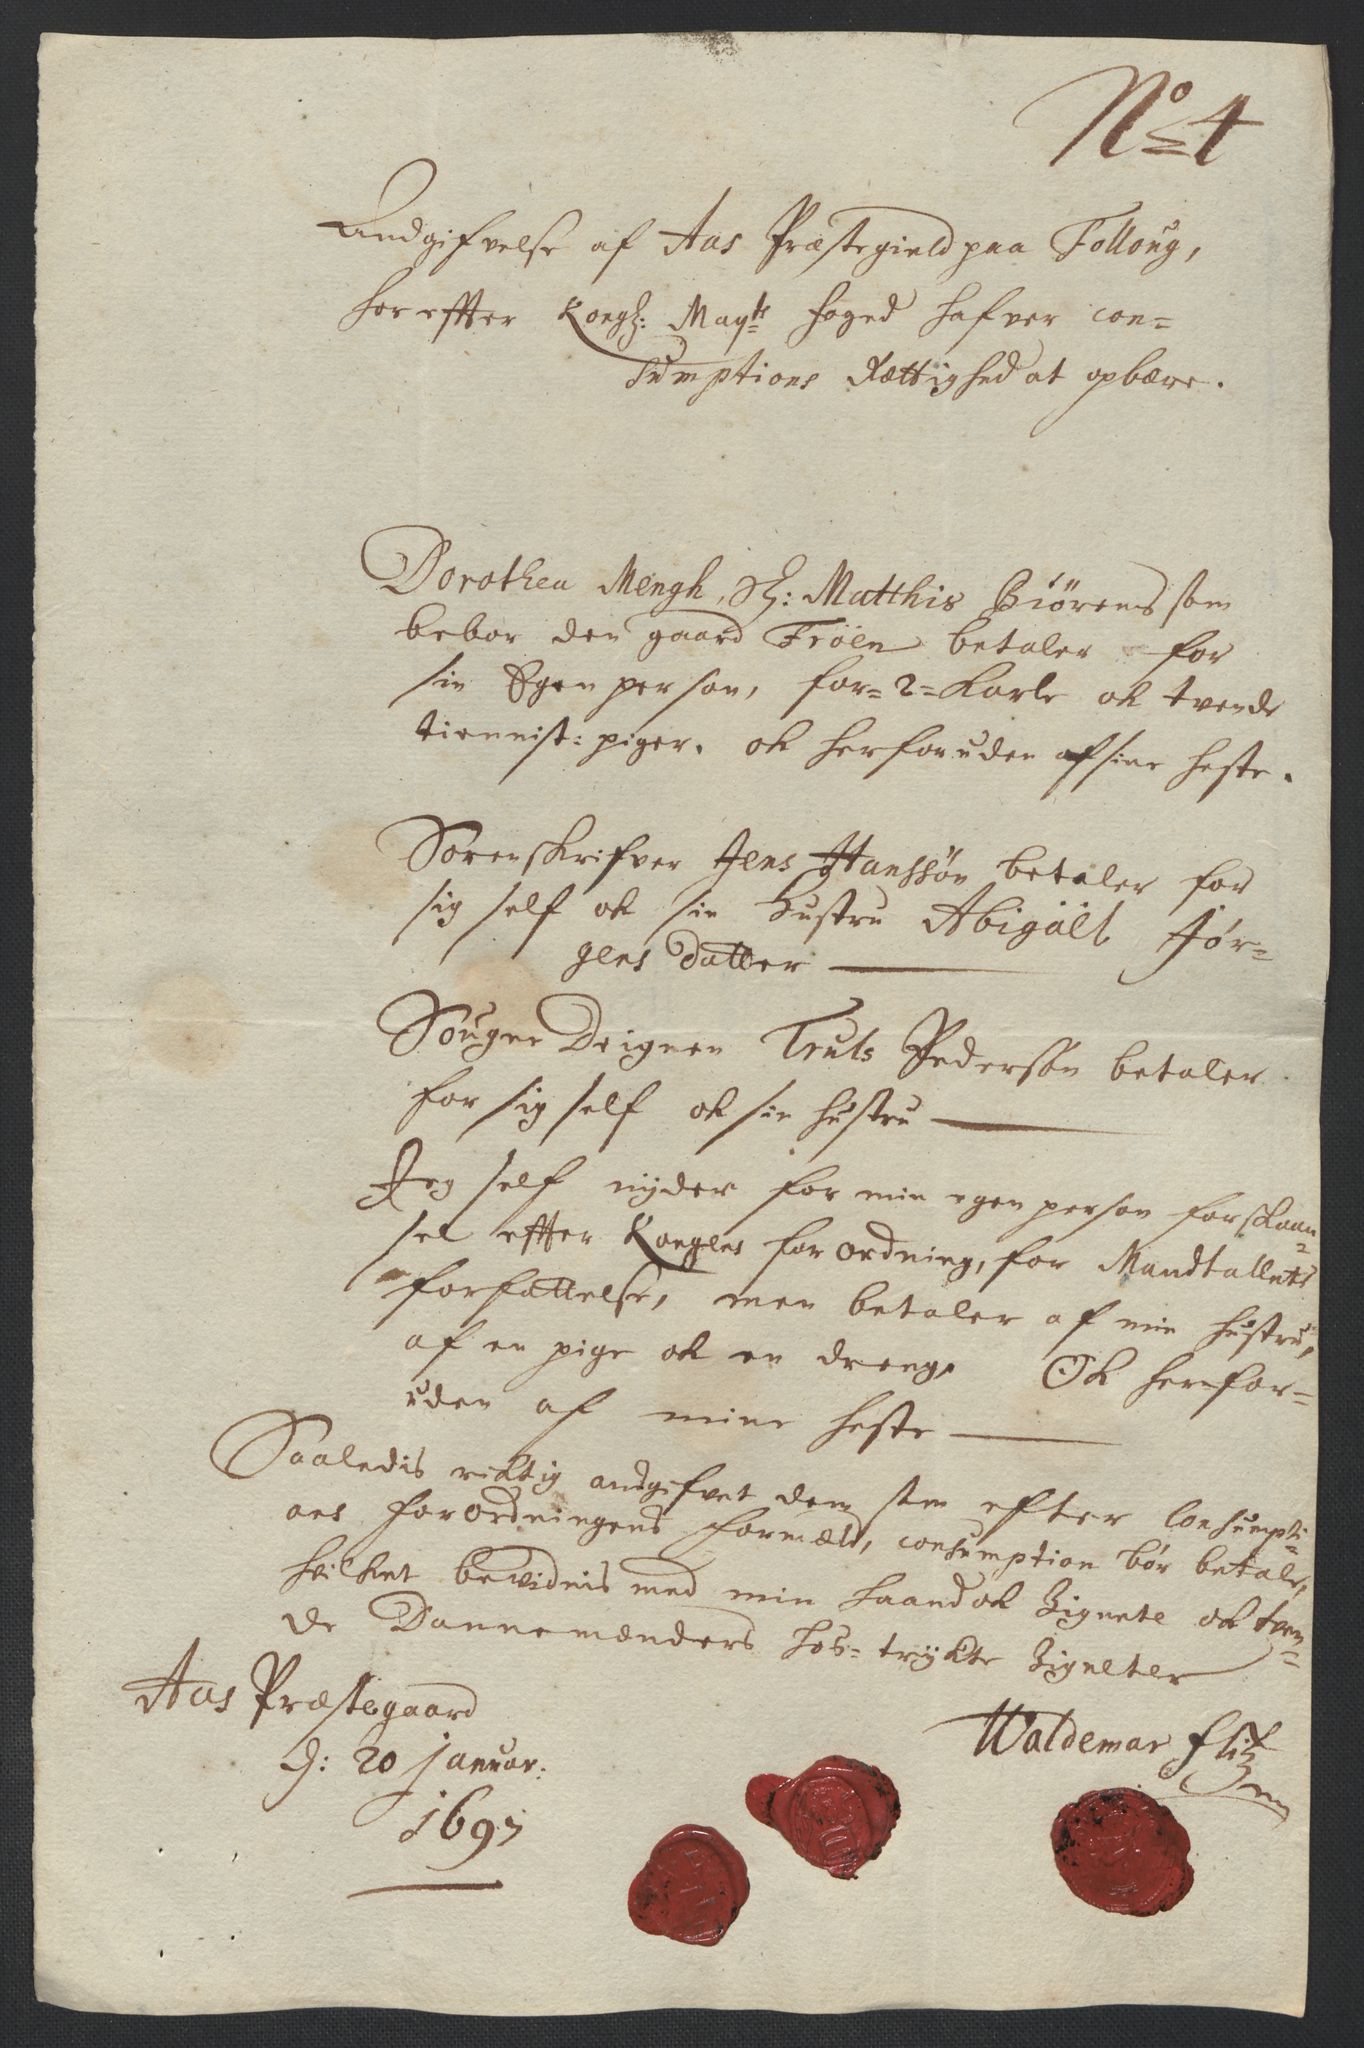 No 4
Andgifvelse af Aas Præstegield paa Folloug,
hor effter Kongl: Mayts foged hafver con=
sumptions Rættighed at opbære.
Dorothea Mengh, Sl: Matthis Biörens som
bebor den gaard Fröen betaler for
sin Egen person, for=2=Karle ok tvende
tiennist=piger. ok herforuden af sine heste.
Sorenskrifver Jens Hanssøn betaler for
sig self ok sin Hustru Abigäel Jör=
gens Datter
Sougne Deignen Truls Pedersön betaler
for sig self ok sin hustru
Jeg self nyder for min egen person forskaan=
sel effter Kongens forordning, for Mandtallets
forfattelse, men betaler af min hustru,
af en pige ok en dreng. Ok herfor=
uden af mine heste
Saaledis riktig andgifvet dem som efter Consumpti=
ons forordningens formæld, consumption bör betale,
hvilket bevidnis med min haand ok Zignete ok tven=
de Dannemænders hos=trykte Zigneter
Aas Præstegaard
d: 20 januar:
1697
Waldemar